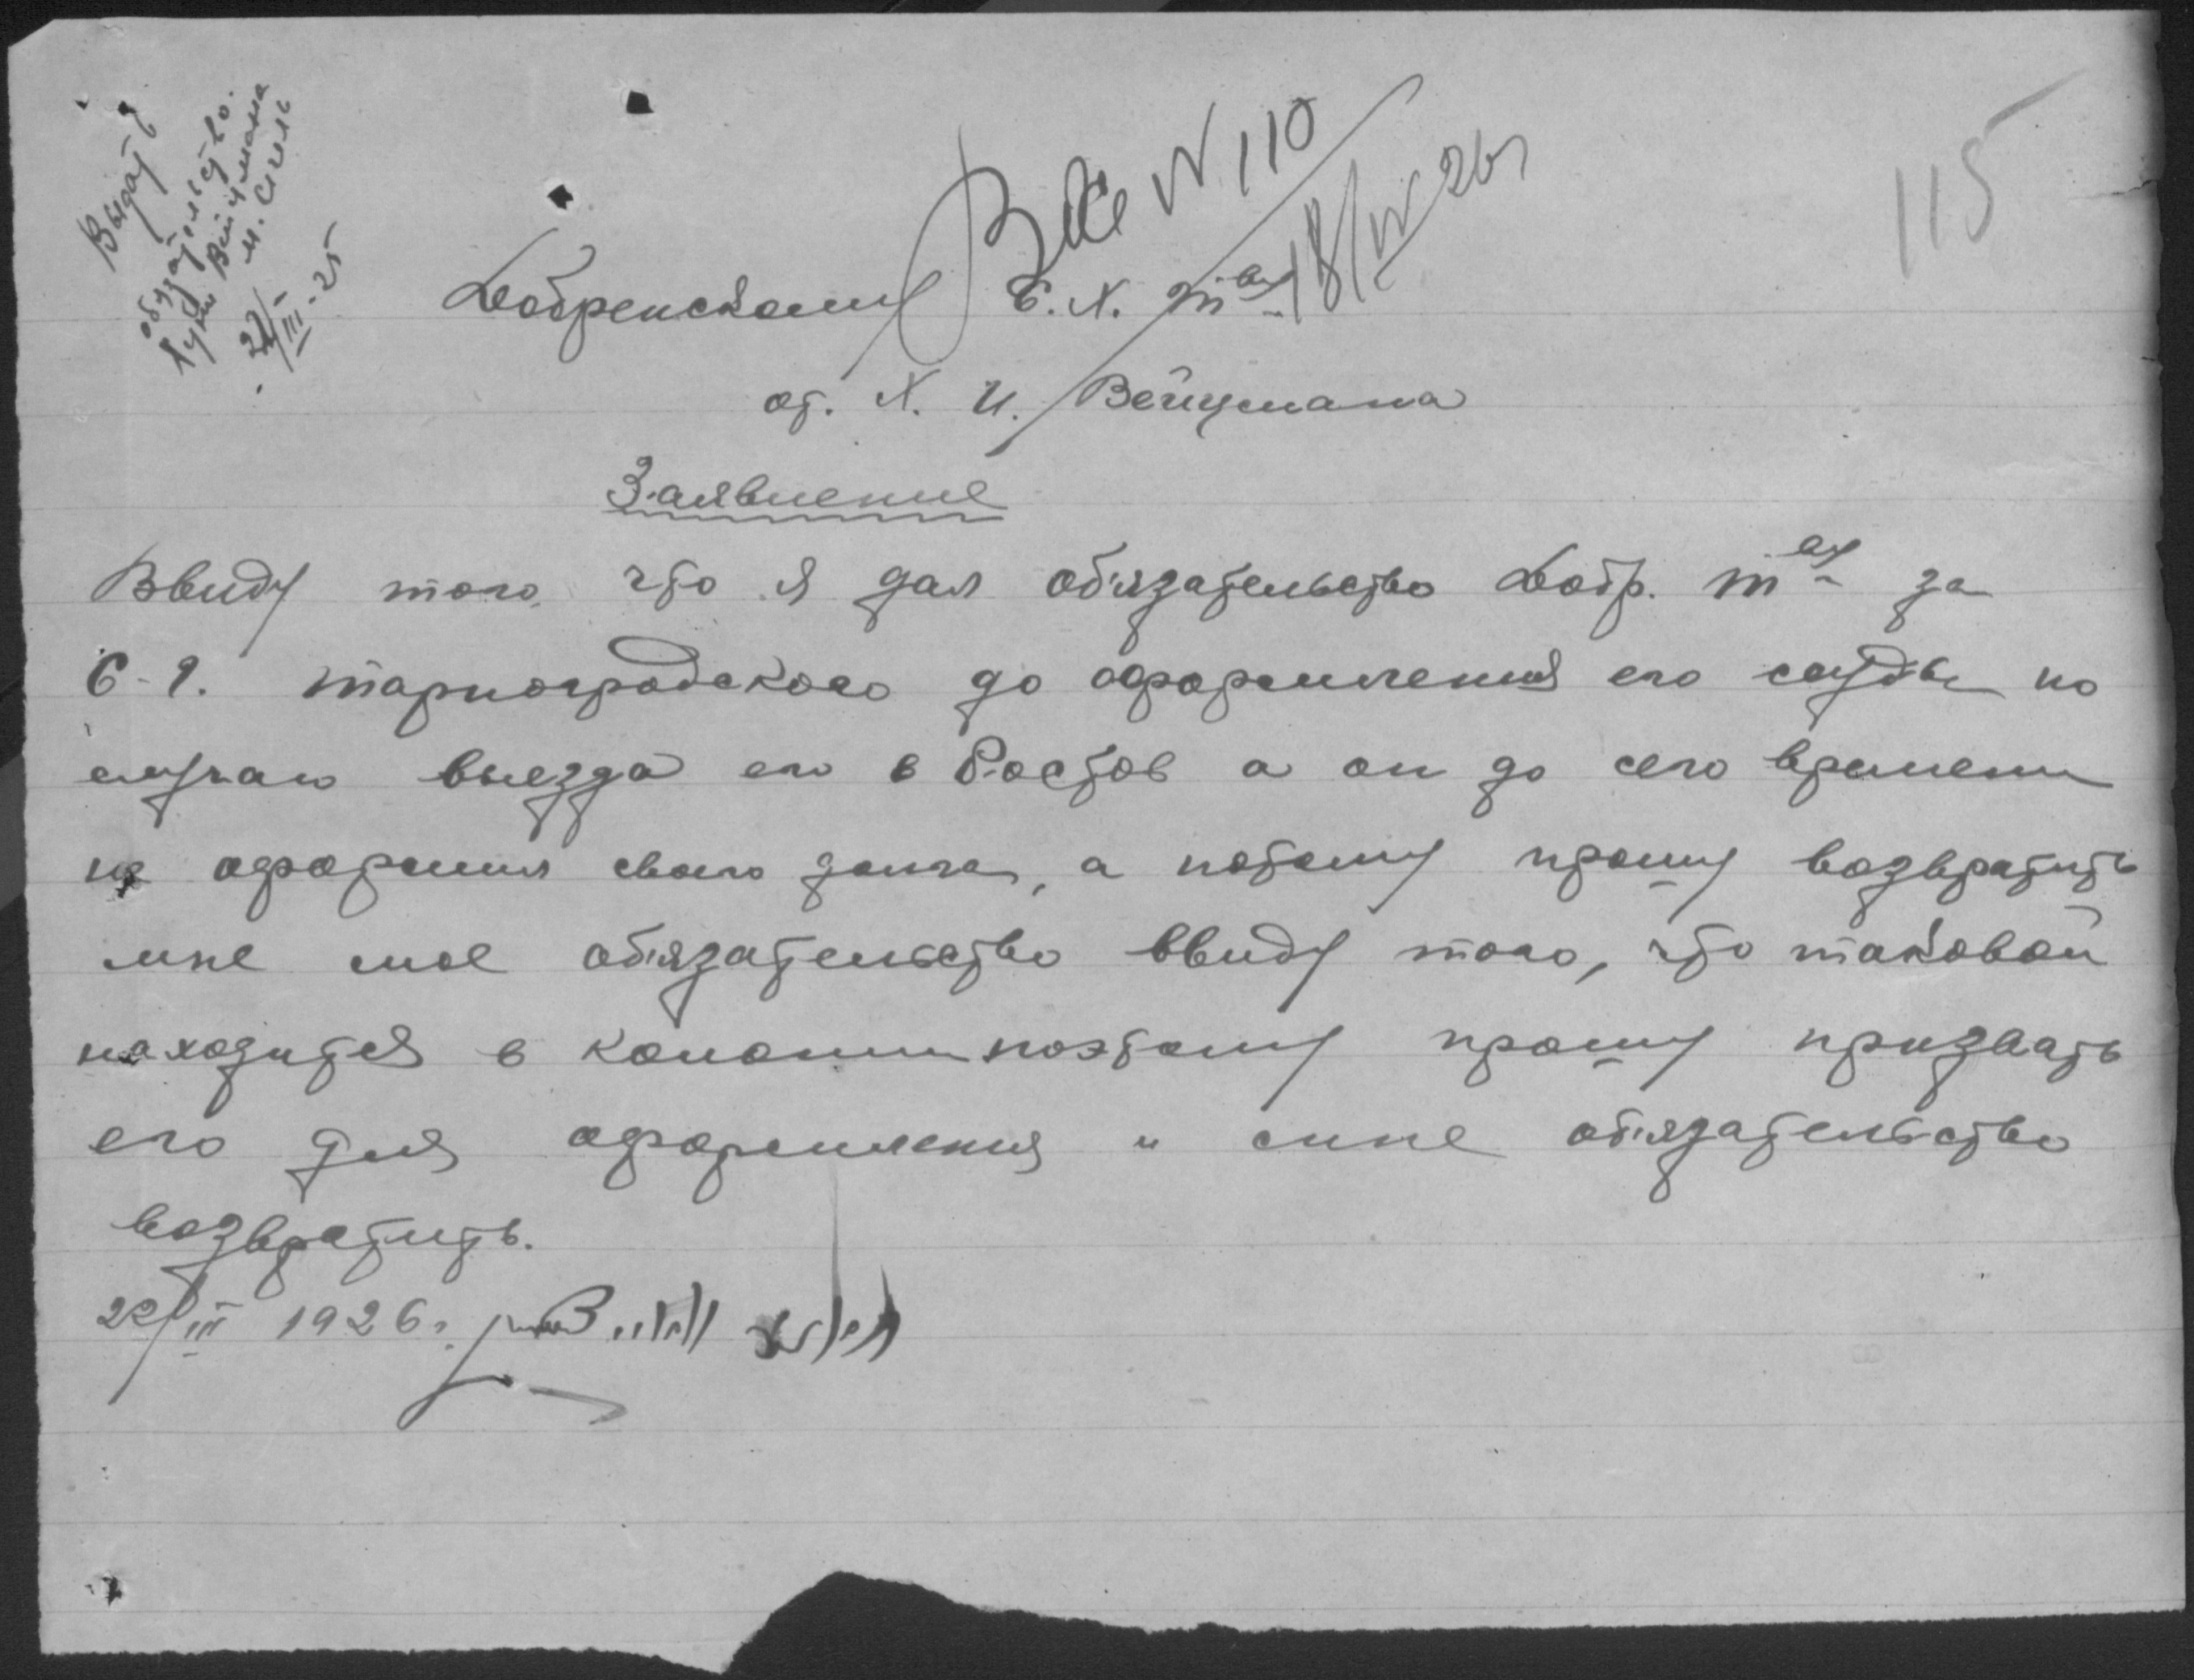 115
Выдать
обязательство.
Вейцмана
М. Сигель
22/III-25
Вх № 110
18/IV 26 г
Добренскому С. Х. Т-ву
от. Х. И. Вейцмана
Заявление
Ввиду того, что я дал об'язательство Добр. Т-ву за
С. Тарноградского до оформления его ссуды по
случаю выезда его в Ростов а он до сего времени
не оформил своего долга, а потому прошу возвратить
мне мое об'язательство ввиду того, что таковой
находится в колонии поэтому прошу призвать
его для оформления и мне об'язательство
возвратить.
22/III 1926 г.